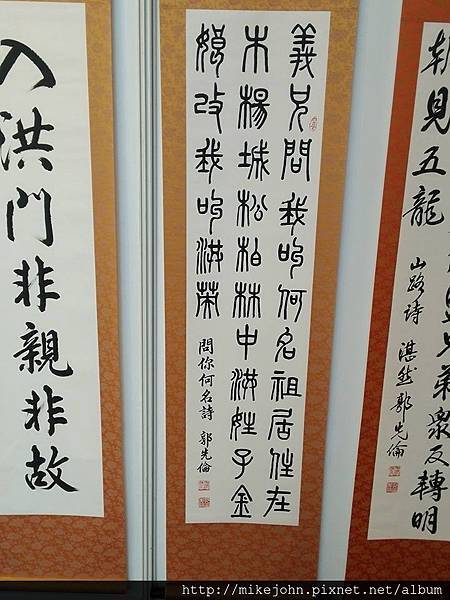 兄弟眾反轉明
朝見五龍
山路詩 湛然郭先倫
義兄問我叫何名祖居住在
木楊城松柏林中洪姓子金
娘改我叫洪榮
問你何名詩 郭先倫
入洪門非親非故
http://mikejohn.pixnet.net/album